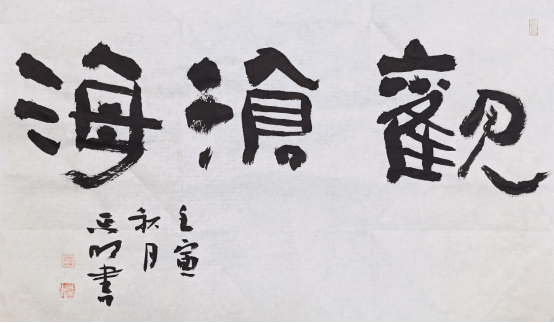 觀滄海
壬寅
秋月
明書